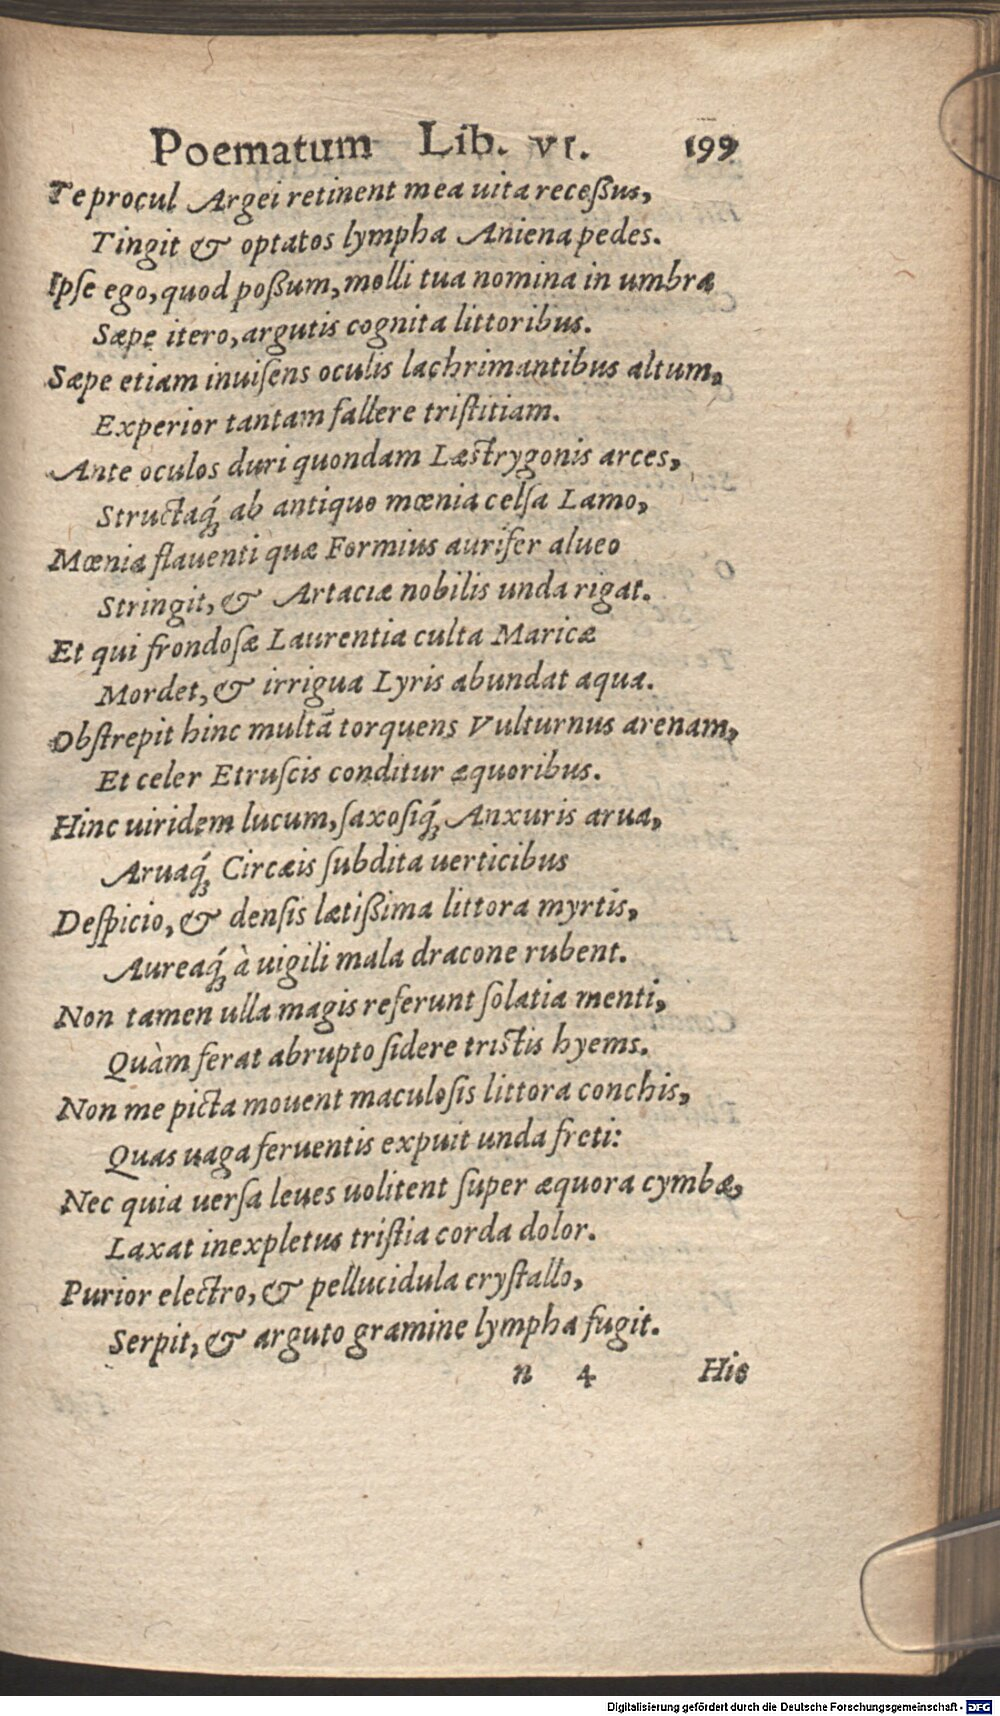 Poematum Lib. VI. 199
Te procul Argei retinent mea uita receßus,
Tingit & optatos lympha Aniena pedes.
Ipſe ego, quod poßum, molli tua nomina in umbra
Sæpe itero, argutis cognita littoribus.
Sæpe etiam inuiſens oculis lachrimantibus altum,
Experior tantam fallere triſtitiam.
Ante oculos duri quondam Læstrygonis arces,
Structaq́ꝫ ab antiquo mœnia celſa Lamo,
Mœnia flauenti quæ Formius aurifer alueo
Stringit, & Artaciæ nobilis unda rigat.
Et qui frondoſæ Laurentia culta Maricæ
Mordet, & irrigua Lyris abundat aqua.
Obſtrepit hinc multã torquens Vulturnus arenam,
Et celer Etruſcis conditur æquoribus.
Hinc uiridem lucum, ſaxoſiq́ꝫ Anxuris arua,
Aruaq́ꝫ Circæis ſubdita uerticibus
Deſpicio, & denſis lætißima littora myrtis,
Aureaq́ꝫ à uigili mala dracone rubent.
Non tamen ulla magis referunt ſolatia menti,
Quàm ferat abrupto ſidere tristis hyems.
Non me picta mouent maculoſis littora conchis,
Quas uaga feruentis expuit unda freti:
Nec quia uerſa leues uolitent ſuper æquora cymbæ,
Laxat inexpletus triſtia corda dolor.
Purior electro, & pellucidula cryſtallo,
Serpit, & arguto gramine lympha fugit.
n 4 His
Digitalisierung gefördert durch die Deutsche Forschungsgemeinschaft - DFG